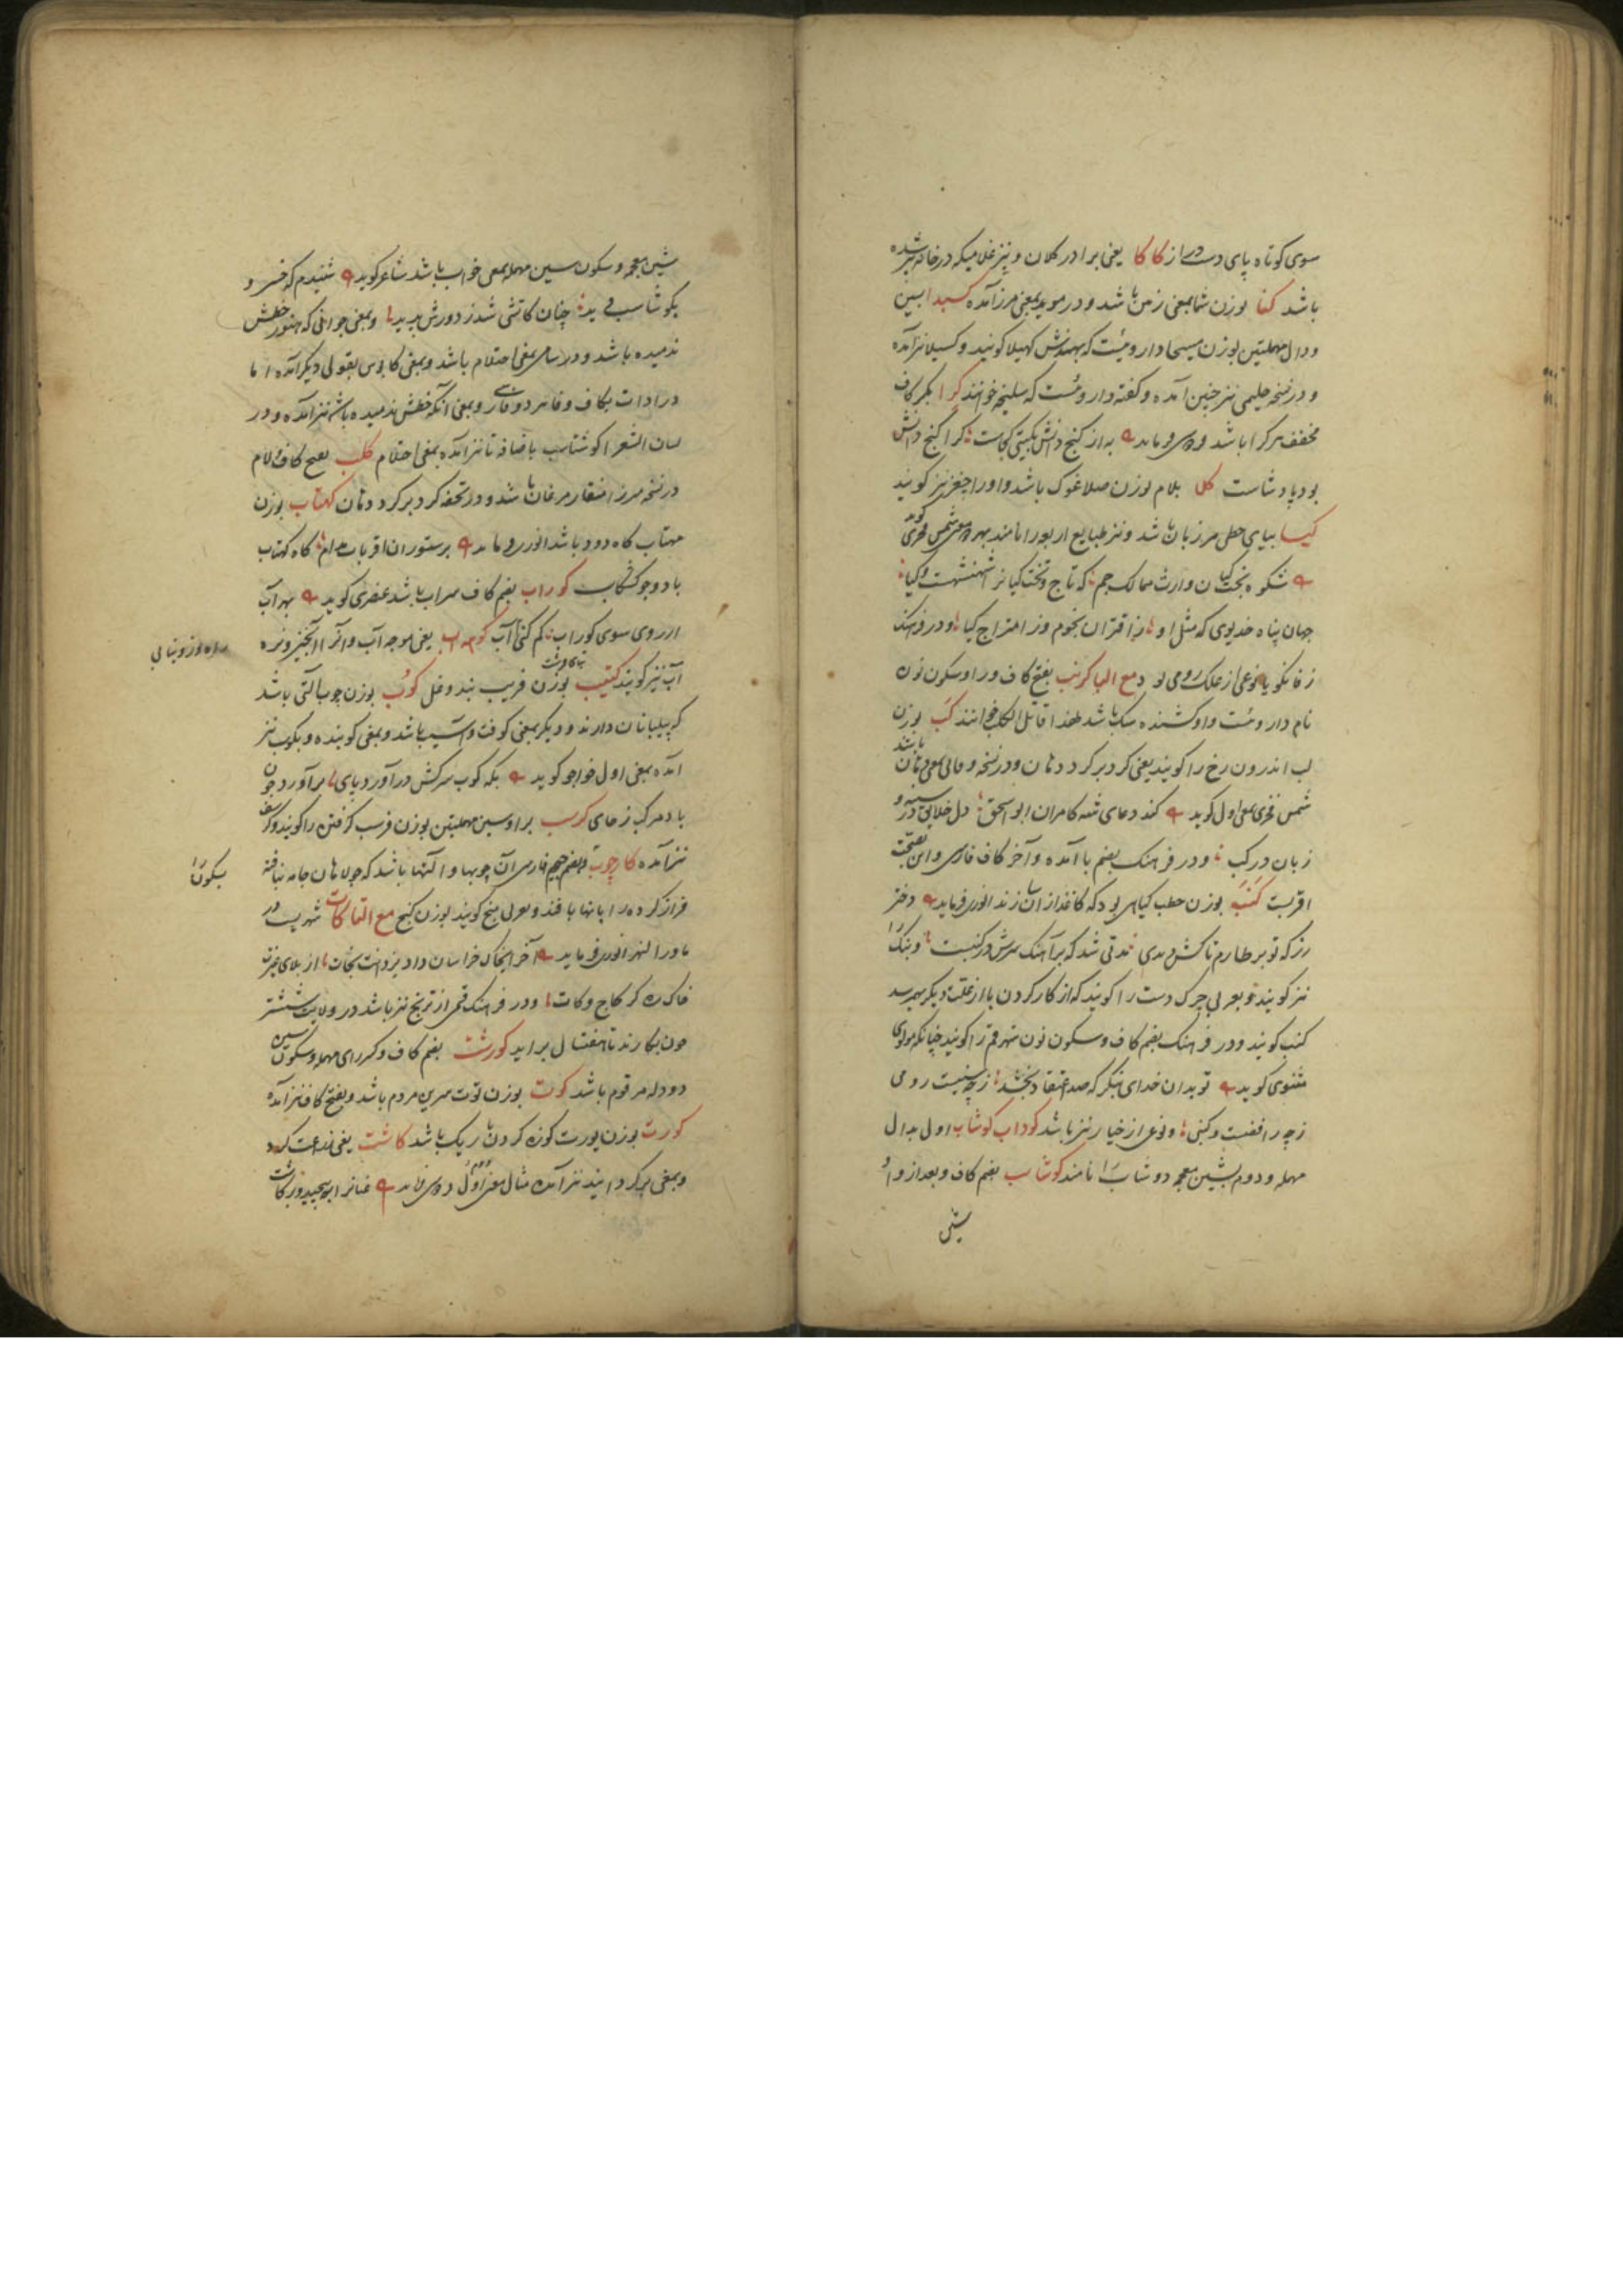 سوی کوتاه پای دست دراز کاکا یعنی برادر کلان و نیز غلامیکه در خانه پیر شده
باشد کنا بوزن شما بمعنی زمین باشد و در موید بمعنی مرز آمده کسیدا بسین
و دال مهملتین بوزن مسیحا داروئیست که بهندش کهیلا کویند و کسیلا نیز آمده
و در نسخه حلیمی نیز چنین آمده و کفته داروئست که سلیخه خوانند کرا بکسر کاف
مخفف هر کرا باشد به از کنج دانش بکیتی کجاست کرا کنج دانش
بود پادشاست کلا بلام بوزن صلا غوک باشد و او را چغز نیز کویند
کیا بیای حطی مرزبان باشد و نیز طبایع اربعه را نامند بهر دو معنی شمس فخری کوید
شکوه بخت کیان وارث ممالک جم که تاج و تخت کیانرا شهنشهست و کیا
جهان پناه خدیوی که مثل او ز اقتران نجوم و ز امتزاج کیا و در فرهنک
زفانکویا نوعی از علک رومی بود مع البا کرنب بفتح کاف و را و سکون نون
نام داروئست و او کشنده سک باشد لهذا قاتل الکلب خوانند کب بوزن
لب اندرون رخ را کویند یعنی کرد بر کرد دهان و در نسخه وفائی بمعنی دهان باشد
شمس فخری بمعنی اول کوید کند دعای شه کامران ابو اسحق دل خلایق در سینه و
زبان در کب و در فرهنک بضم با آمده و آخر کاف فارسی و این بصحت
اقربست کنب بوزن حطب کیاهی بود که کاغذ از آن سازند انوری فرماید دختر
رز که تو بر طارم تاکش دیدی مدتی شد که بر آهنک سرش در کنبست و بنک را
نیز کویند و بعربی چرک دست را کویند که از کار کردن یا از علت دیکر بهم رسد
کنب کویند و در فرهنک بضم کاف و سکون نون شهر قم را کویند چنانکه مولوی
مثنوی کوید تو بدان خدای بنکر که صد اعتقاد بخشد ز چه سنیست رومی
ز چه رافضیست کنبی و نوعی از خیار نیز باشد کوداب کوشاب اول بدال
مهمله و دوم بشین معجمه دوشاب را نامند کوشاسب بضم کاف و بعد از واو
شین
شین معجمه و سکون سین مهمله بمعنی خواب باشد شاعر کوید شنیدم که خسرو
بکوشاسب دید چنان کاتشی شد ز دورش پدید و بمعنی جوانی که هنوز خطش
ندمیده باشد و در سامی بمعنی احتلام باشد و بمعنی کابوس بقولی دیکر آمده اما
در ادات بکاف و فا و بمعنی آنکه خطش ندمیده باشد نیز آمده و در
لسان الشعرا کوشتاسب باضافه تا نیز آمده بمعنی احتلام کلب بفتح کاف و لام
در نسخه میرزا منقار مرغان باشد و در تحفه کرد بر کرد دهان کهتاب بوزن
مهتاب کاه دود باشد انوری فرماید بر ستوران اقربات مدام کاه کهتاب
باد و جو کشکاب کوراب بضم کاف سراب باشد عنصری کوید بهر آب
از روی سوی کوراب کم کنی آب کوهه آب یعنی موجه آب و آنرا آبخیز و نره
آب نیز کویند کتیب بوزن فریب بند و غل کوب بوزن چوب آلتی باشد
که پیلبانان دارند و دیکر بمعنی کوفت و آسیب باشد و بمعنی کوبنده و بکوب نیز
آمده بمعنی اول خواجو کوید بکه کوب سرکش درآورد پای برآورد چون
باد مرکب ز جای کرسب برا و سین مهملتین بوزن فرسب کرفتن را کویند و کرسف
نیز آمده کارچوب بضم جیم فارسی آن چوبها و آلتها باشد که جولاهان جامه بافته
فراز کرده را بآنها بافند و بعربی منج کویند بوزن کنج مع التا کات شهریست در
ماوراالنهر انوری فرماید آخر ایخاک خراسان داد یزدانت نجات از بلای غیرت
خاک ره کرکانج و کات و در فرهنک قمی از ترنج نیز باشد در ولایت ششتر
چون بکارند تا هفت سال برآید کورشت بضم کاف و کسر رای مهمله و سکون سین
دو دله مرقوم باشد کوت بوزن توت سرین مردم باشد و بفتح کاف نیز آمده
کورت بوزن پورت کوزه کردن باریک باشد کاشت یعنی زراعت کرد
و بمعنی برکردانید نیز آمده مثال معنی اول فردوسی عنانرا بپیچید و برکاشت
بسکون را